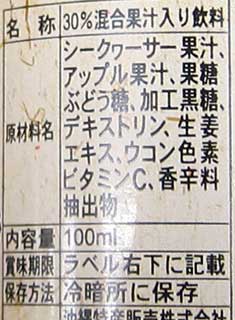 名 称 30%混合果汁入り飲料
原材料名 シークヮーサー果汁、
アップル果汁、果糖
ぶどう糖、加工黒糖、
デキストリン、生姜
エキス、ウコン色素
ビタミンC、香辛料
抽出物
内容量 100ml
賞味期限 ラベル右下に記載
保存方法 冷暗所に保存
沖縄特産販売株式会社